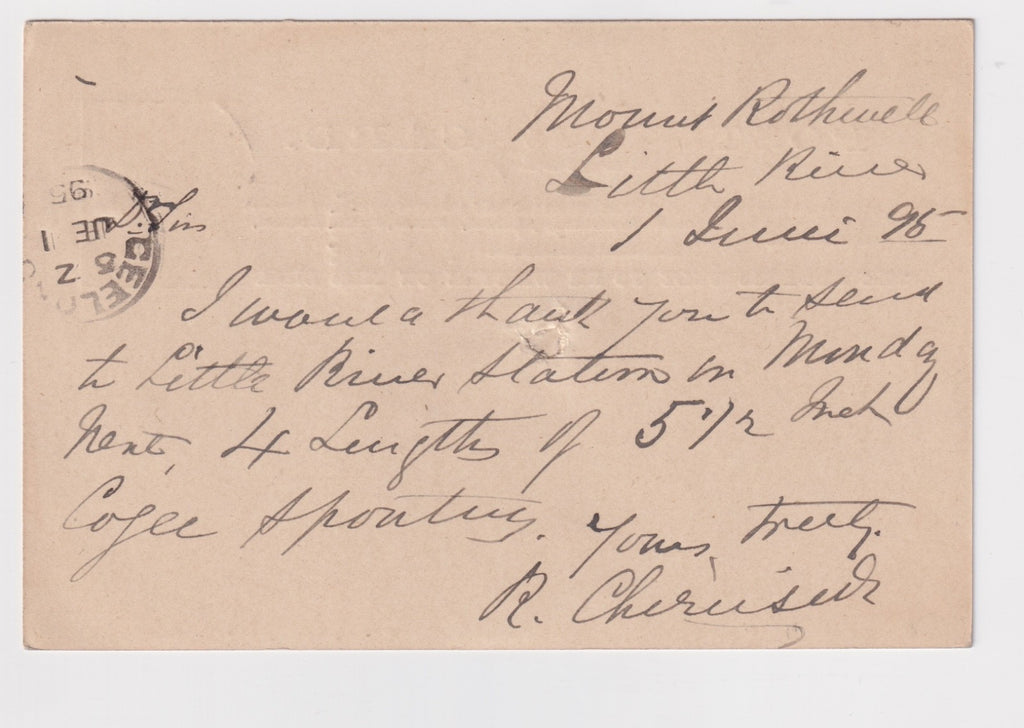 Mount Rothwell
Little River
1 June 95
D Sir
I would thank you to send
to Little River Station on Monday
Next, 4 Lengths of 5 1/2 Inch
Ogee Spouting.
Yours truly.
R. Chirnside
GEELONG
3
Z
JE 1
95